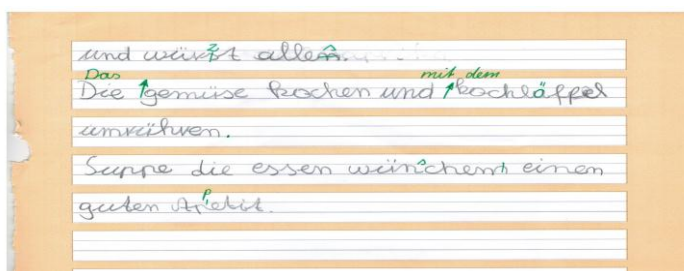 und würzt allen.
Das mit dem
Die gemüse kochen und kochläffel
umrühren.
Suppe die essen wünchent einen
guten Apetit.